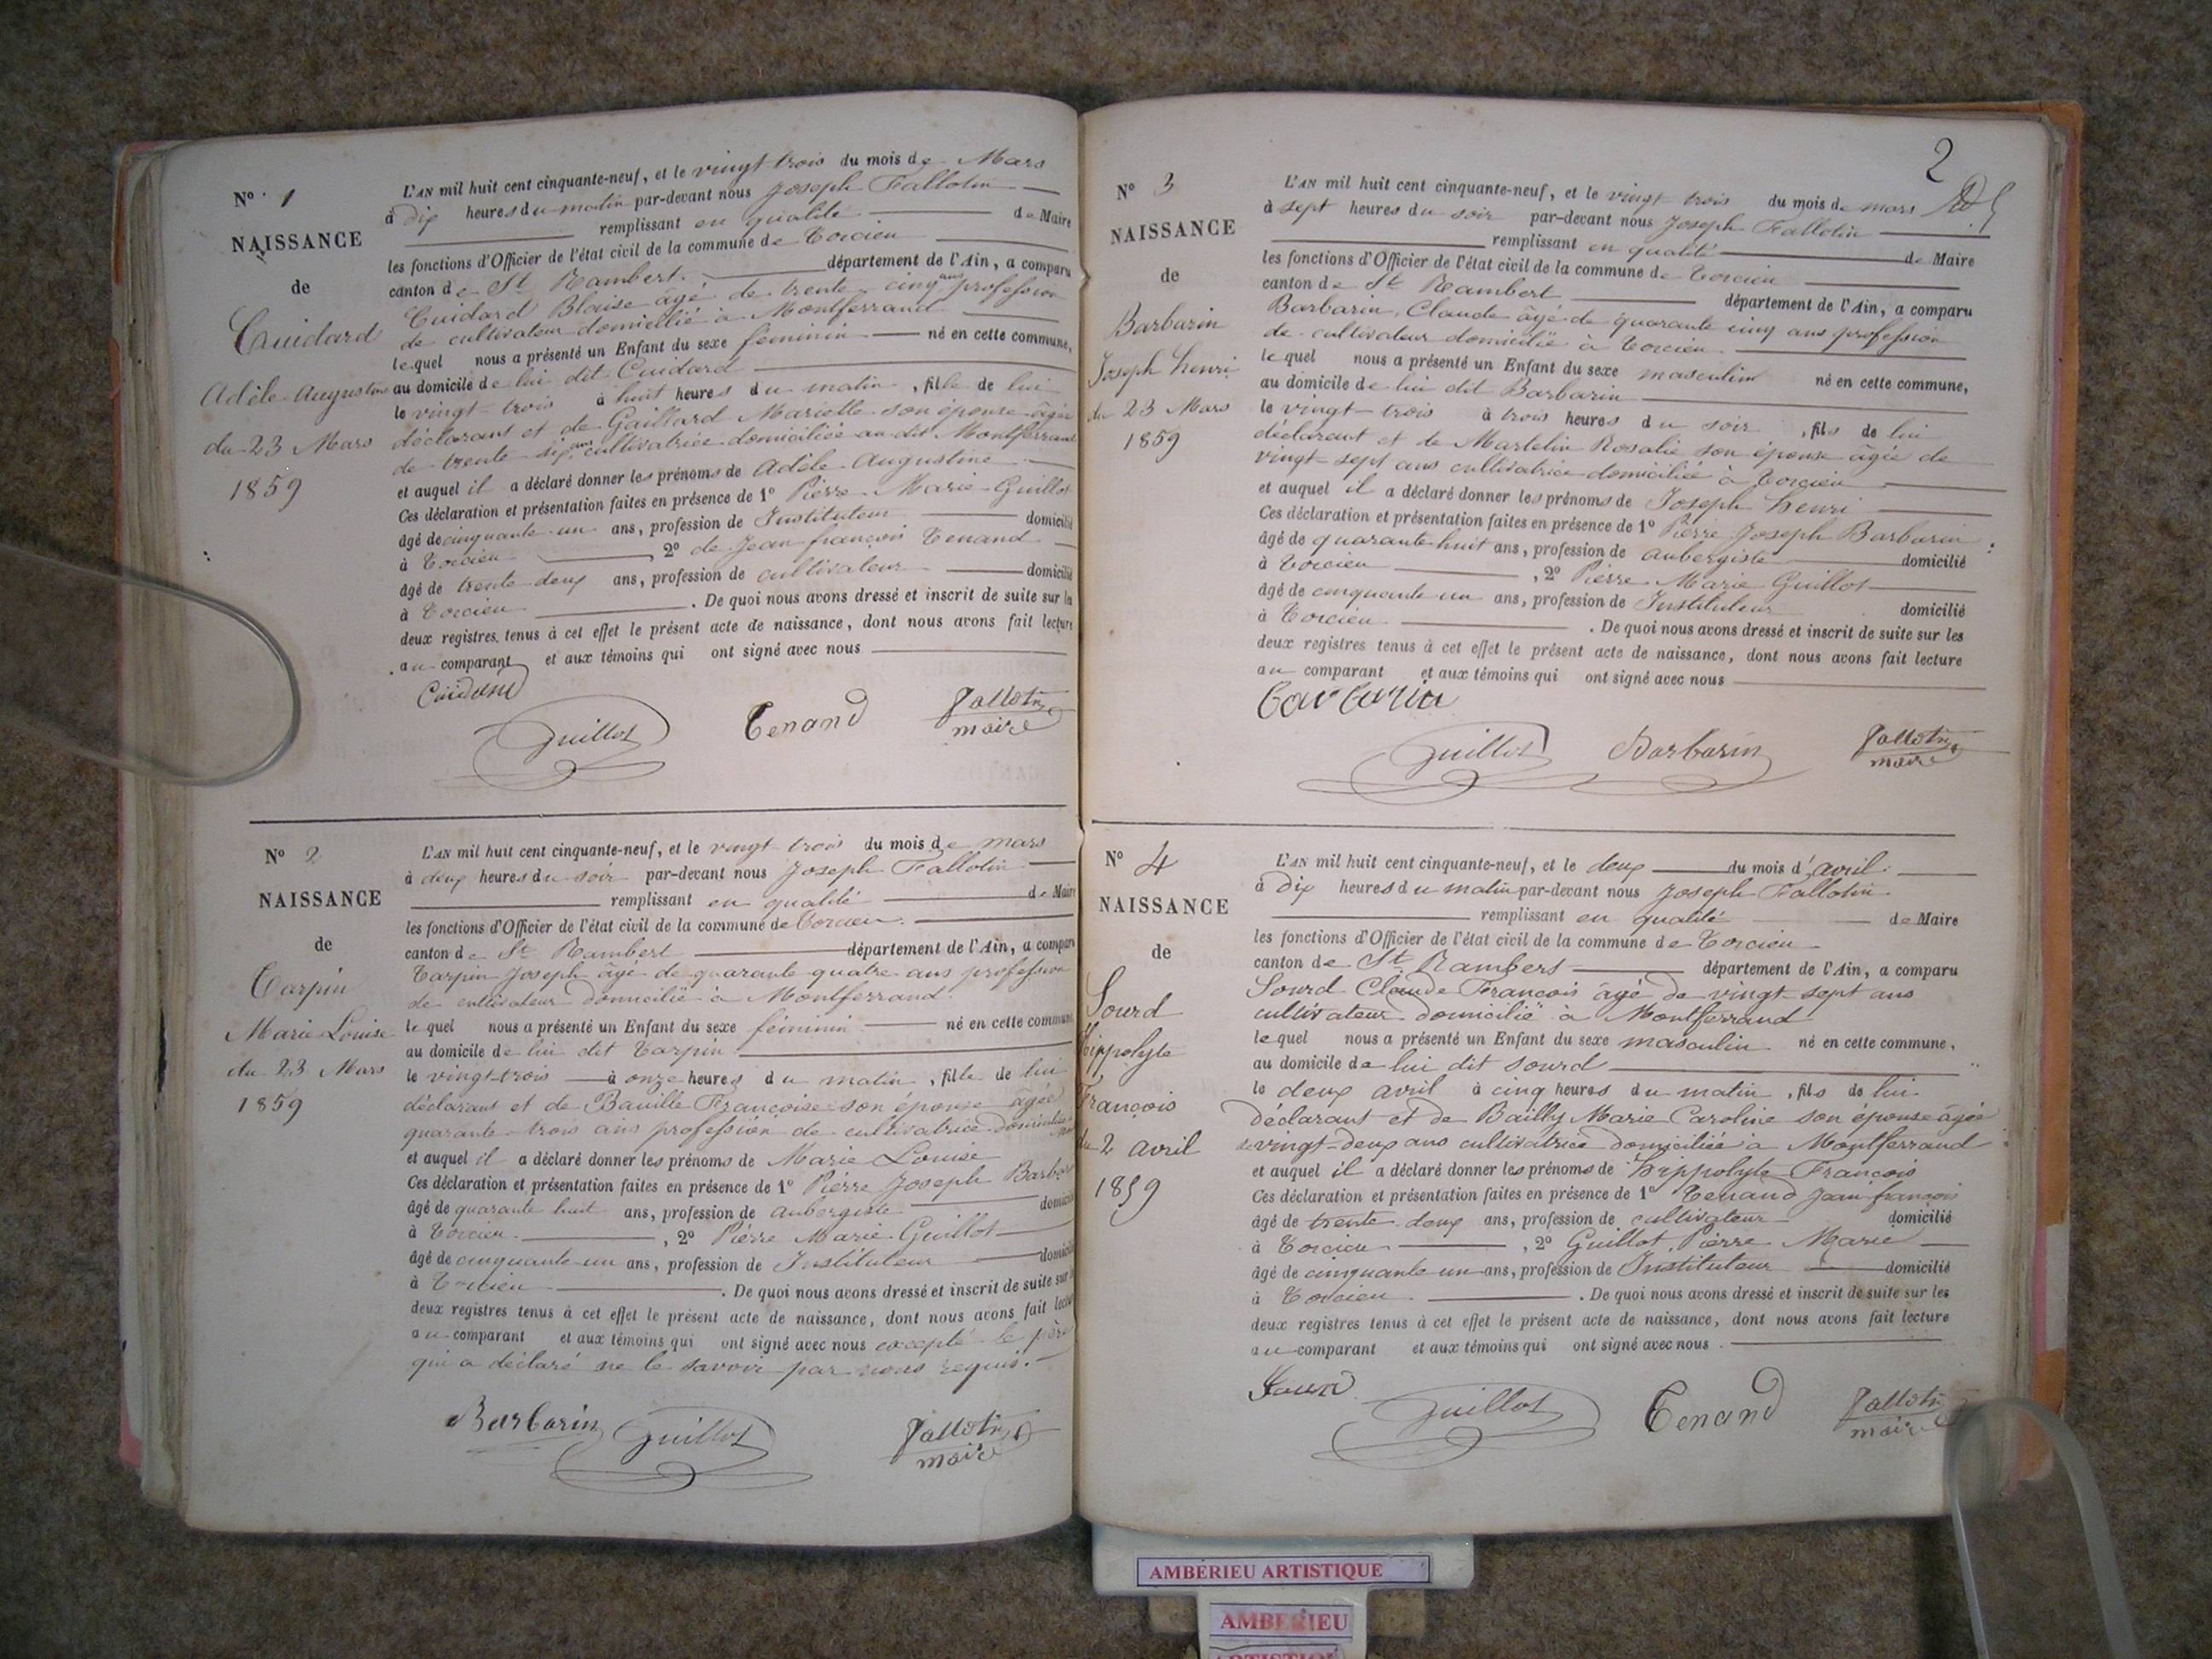 N° 1
NAISSANCE
de
Cuidard
Adèle Augustine
du 23 Mars
1859
L'AN mil huit cent cinquante-neuf, et le vingt trois du mois de Mars
à dix heures du matin par-devant nous Joseph Fallotin
remplissant en qualité de Maire
les fonctions d'Officier de l'état civil de la commune de Torcieu
canton de St Rambert département de l'Ain, a comparu
Cuidard Blaise âgé de trente cinq ans profession
de cultivateur domicilié à Montferrand
lequel nous a présenté un Enfant du sexe féminin né en cette commune,
au domicile de lui dit Cuidard
le vingt-trois à huit heures du matin, fille de lui
déclarant et de Gaillard Mariette son épouse âgée
de trente six ans cultivatrice domiciliée au dit Montferrand
et auquel il a déclaré donner les prénoms de Adèle Augustine
Ces déclaration et présentation faites en présence de 1° Pierre Marie Guillot
âgé de cinquante un ans, profession de Instituteur domicilié
à Torcieu, 2° de Jean françois Tenand
âgé de trente deux ans, profession de cultivateur domicilié
à Torcieu. De quoi nous avons dressé et inscrit de suite sur les
deux registres tenus à cet effet le présent acte de naissance, dont nous avons fait lecture
au comparant et aux témoins qui ont signé avec nous
Cuidard
Guillot Tenand Fallotin
maire
N° 2
NAISSANCE
de
Tarpin
Marie Louise
du 23 Mars
1859
L'AN mil huit cent cinquante-neuf, et le vingt trois du mois de mars
à deux heures du soir par-devant nous Joseph Fallotin
remplissant en qualité de Maire
les fonctions d'Officier de l'état civil de la commune de Torcieu
canton de St Rambert département de l'Ain, a comparu
Tarpin Joseph âgé de quarante quatre ans profession
de cultivateur domicilié à Montferrand
lequel nous a présenté un Enfant du sexe féminin né en cette commune
au domicile de lui dit Tarpin
le vingt-trois à onze heures du matin, fille de lui
déclarant et de Françoise son épouse âgée
quarante trois ans profession de cultivatrice domiciliée
et auquel il a déclaré donner les prénoms de Marie Louise
Ces déclaration et présentation faites en présence de 1° Pierre Joseph Barbarin
âgé de quarante huit ans, profession de aubergiste domicilié
à Torcieu, 2° Pierre Marie Guillot
âgé de cinquante un ans, profession de Instituteur domicilié
à Torcieu. De quoi nous avons dressé et inscrit de suite sur les
deux registres tenus à cet effet le présent acte de naissance, dont nous avons fait lecture
au comparant et aux témoins qui ont signé avec nous excepté le père
qui a déclaré ne le savoir par nous requis.
Barbarin Guillot Fallotin
maire
2
N° 3
NAISSANCE
de
Barbarin
Joseph henri
du 23 Mars
1859
L'AN mil huit cent cinquante-neuf, et le vingt trois du mois de mars
à sept heures du soir par-devant nous Joseph Fallotin
remplissant en qualité de Maire
les fonctions d'Officier de l'état civil de la commune de Torcieu
canton de St Rambert département de l'Ain, a comparu
Barbarin, Claude âgé de quarante cinq ans profession
de cultivateur domicilié à Torcieu
lequel nous a présenté un Enfant du sexe masculin né en cette commune,
au domicile de lui dit Barbarin
le vingt-trois à trois heures du soir, fils de lui
déclarant et de Martelin Rosalie son épouse âgée de
vingt-sept ans cultivatrice domiciliée à Torcieu
et auquel il a déclaré donner les prénoms de Joseph henri
Ces déclaration et présentation faites en présence de 1° Pierre Joseph Barbarin
âgé de quarante huit ans, profession de aubergiste domicilié
à Torcieu, 2° Pierre Marie Guillot
âgé de cinquante un ans, profession de Instituteur domicilié
à Torcieu. De quoi nous avons dressé et inscrit de suite sur les
deux registres tenus à cet effet le présent acte de naissance, dont nous avons fait lecture
au comparant et aux témoins qui ont signé avec nous
barbarin
Guillot Barbarin Fallotin
maire
N° 4
NAISSANCE
de
Sourd
Hippolyte
François
du 2 avril
1859
L'AN mil huit cent cinquante-neuf, et le deux du mois d'avril
à dix heures du matin par-devant nous Joseph Fallotin
remplissant en qualité de Maire
les fonctions d'Officier de l'état civil de la commune de Torcieu
canton de St Rambert département de l'Ain, a comparu
Sourd Claude François âgé de vingt-sept ans
cultivateur domicilié à Montferrand
lequel nous a présenté un Enfant du sexe masculin né en cette commune,
au domicile de lui dit sourd
le deux avril à cinq heures du matin, fils de lui
déclarant et de Bailly Marie Caroline son épouse âgée
de vingt-deux ans cultivatrice domiciliée à Montferrand
et auquel il a déclaré donner les prénoms de hippolyte François
Ces déclaration et présentation faites en présence de 1° Tenand Jean françois
âgé de trente deux ans, profession de cultivateur domicilié
à Torcieu, 2° Guillot, Pierre Marie
âgé de cinquante un ans, profession de Instituteur domicilié
à Torcieu. De quoi nous avons dressé et inscrit de suite sur les
deux registres tenus à cet effet le présent acte de naissance, dont nous avons fait lecture
au comparant et aux témoins qui ont signé avec nous
Sourd
Guillot Tenand Fallotin
maire
AMBERIEU ARTISTIQUE
AMBERIEU
ARTISTIQUE